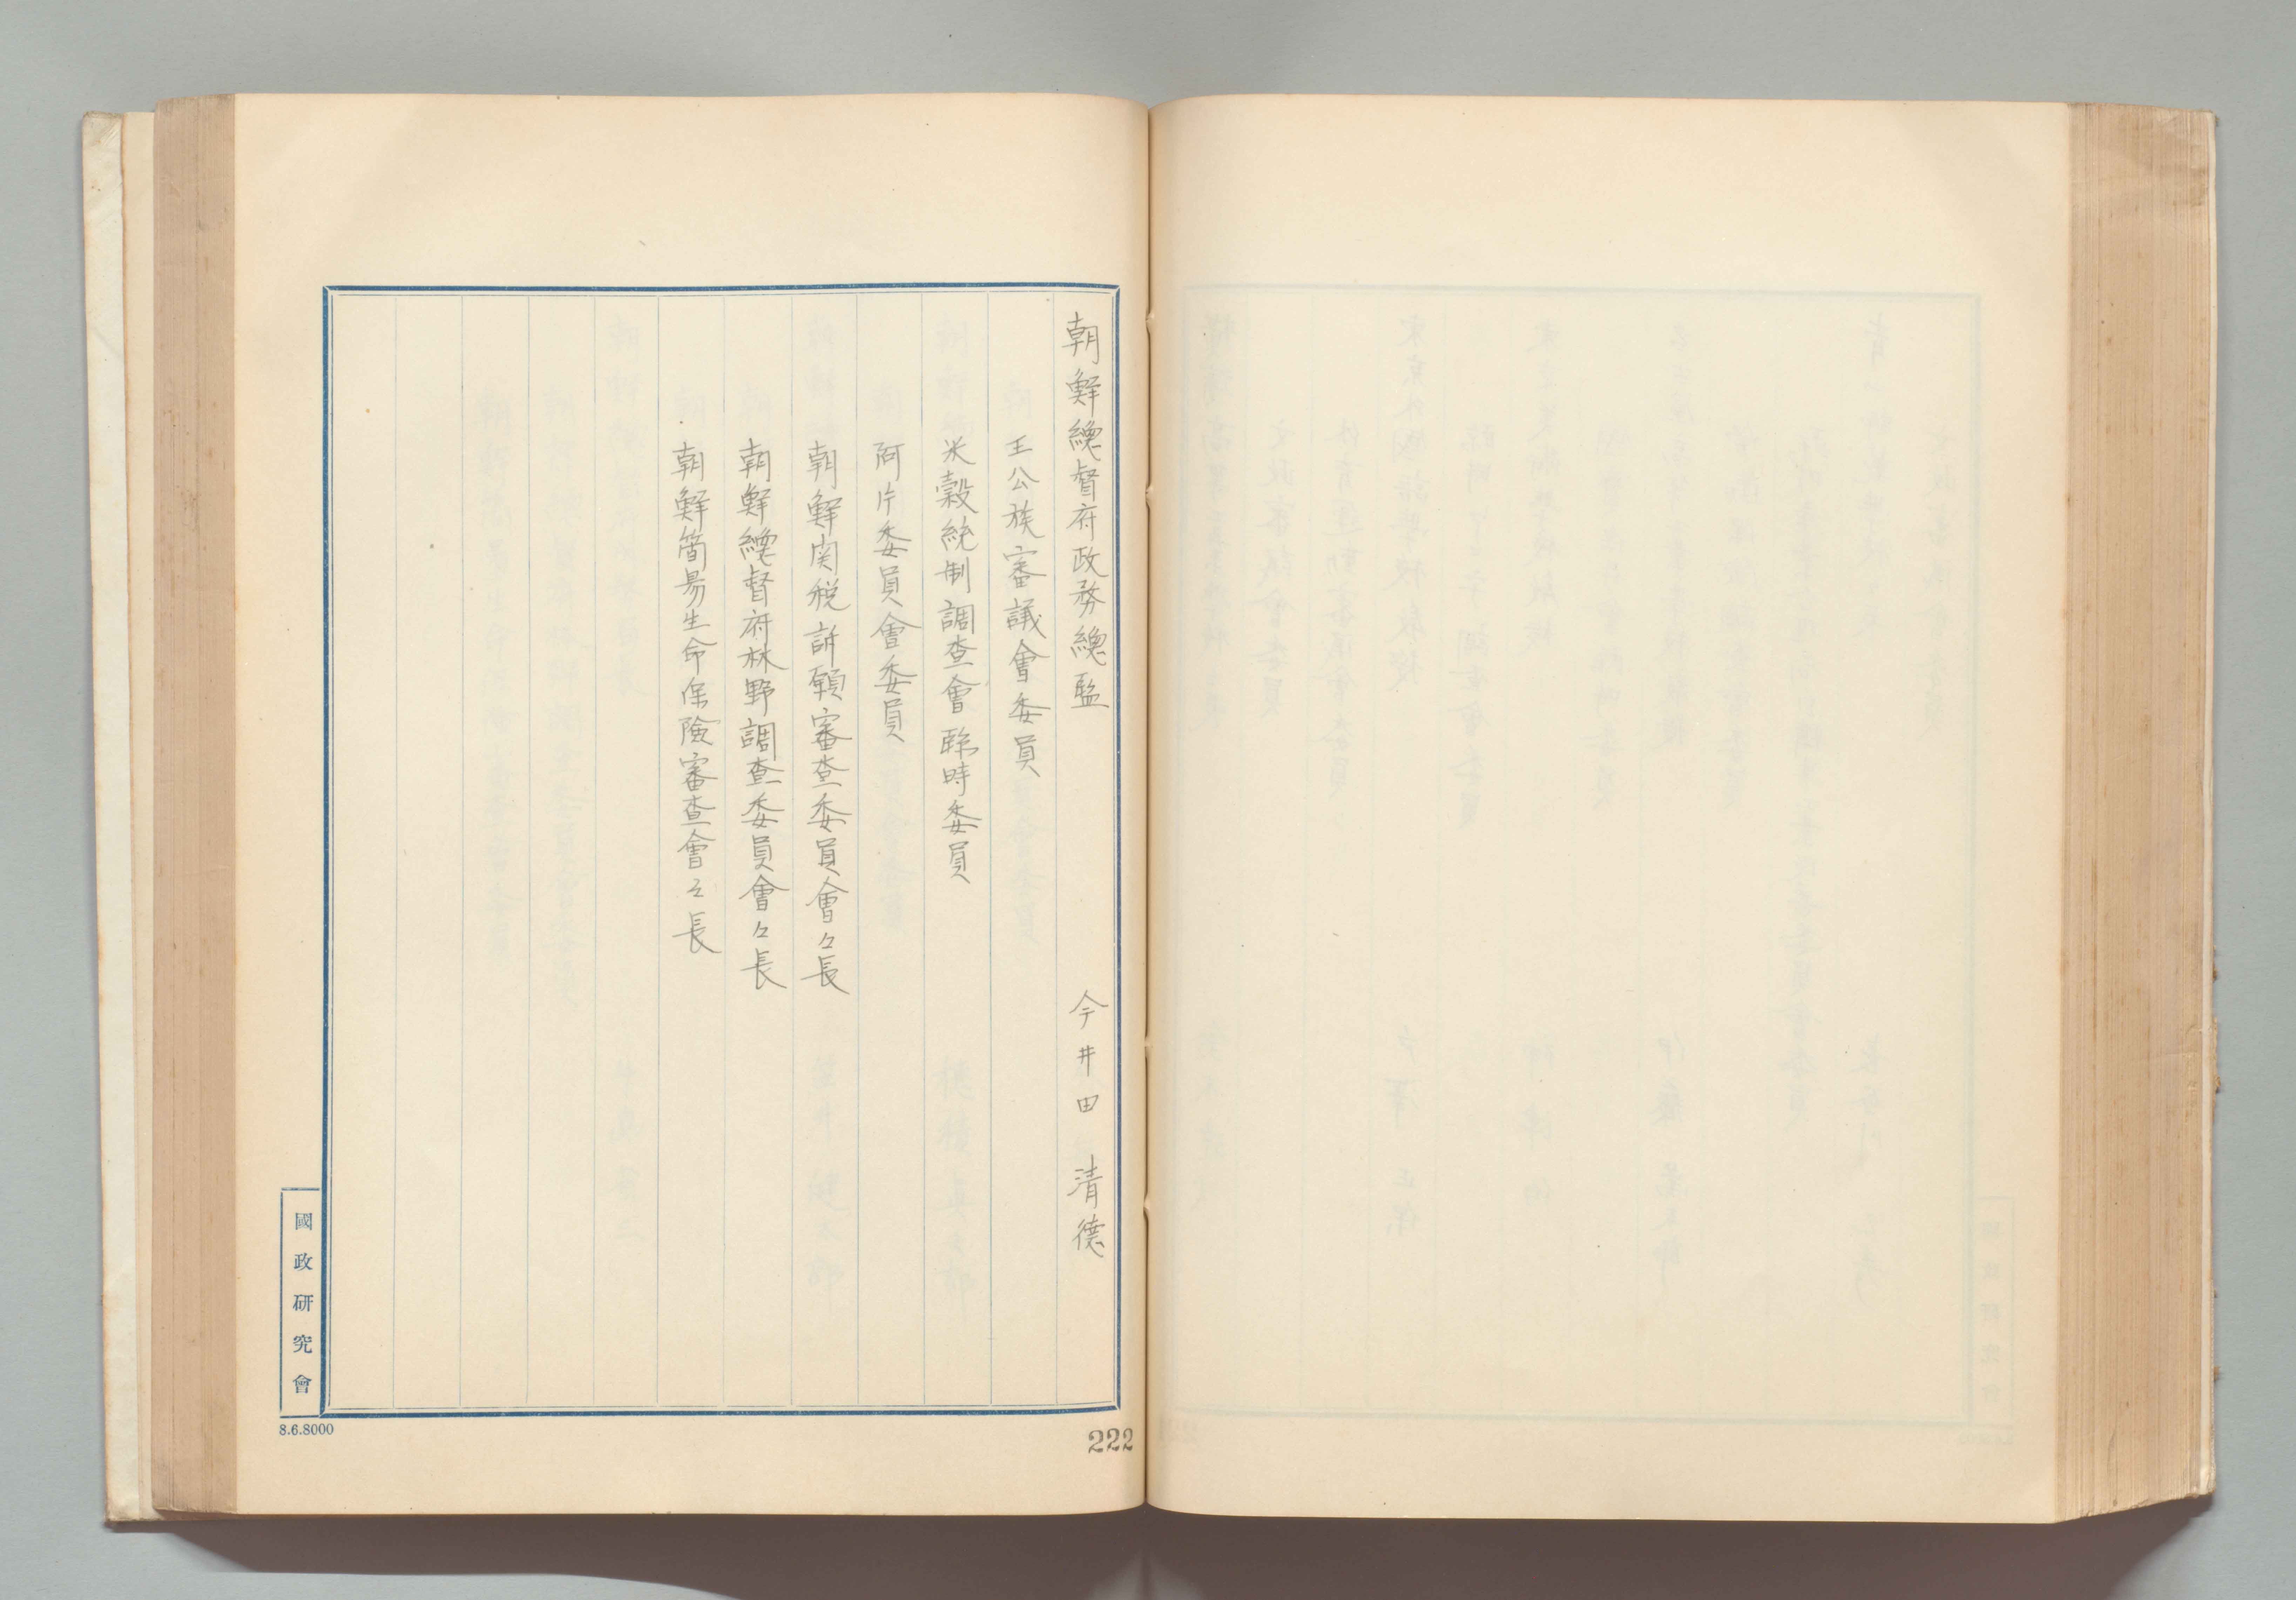 朝鮮總督府政務總監　今井田　清德
王公族審議會委員
米穀統制調査會臨時委員
阿片委員會委員
朝鮮関税訴願審査委員會々長
朝鮮總督府林野調査委員會々長
朝鮮簡易生命保險審査會々長
國政研究會
8.6.8000
222